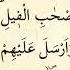 صْحٰبِ الْفٖيلِؕ
وَاَرْسَلَ عَلَيْهِمْ